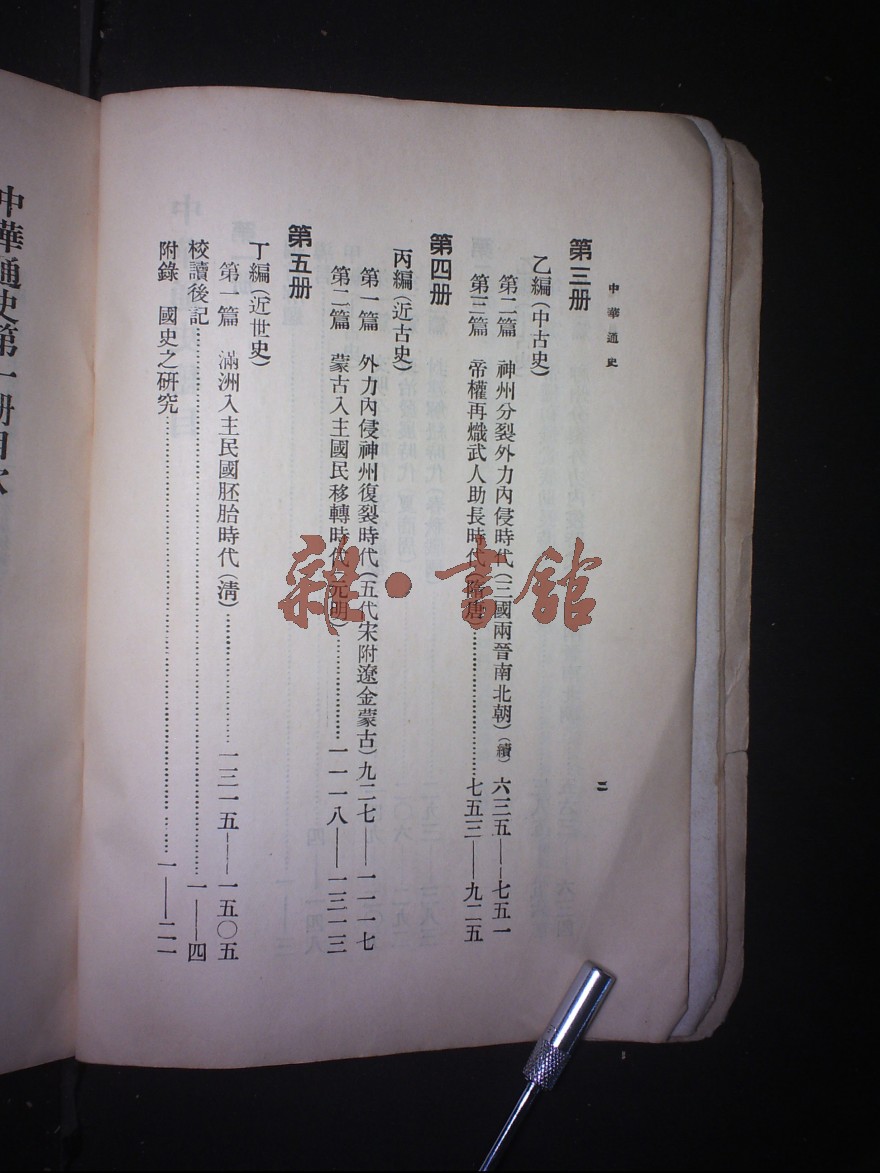 中華通史
二
第三册
乙編(中古史)
第二篇 神州分裂外力內侵時代(三國兩晉南北朝)(續) 六三五——七五一
第三篇 帝權再熾武人助長時代(隋唐)……七五三——九二五
第四册
丙編(近古史)
第一篇 外力內侵神州復裂時代(五代宋附遼金蒙古)九二七——一一一七
第二篇 蒙古入主國民移轉時代(元明)……一一一八——一三一三
第五册
丁編(近世史)
第一篇 滿洲入主民國胚胎時代(淸)……一三一五——一五〇五
校讀後記……一——四
附錄 國史之研究……一——二一
中華通史第一册目次
雜·書館